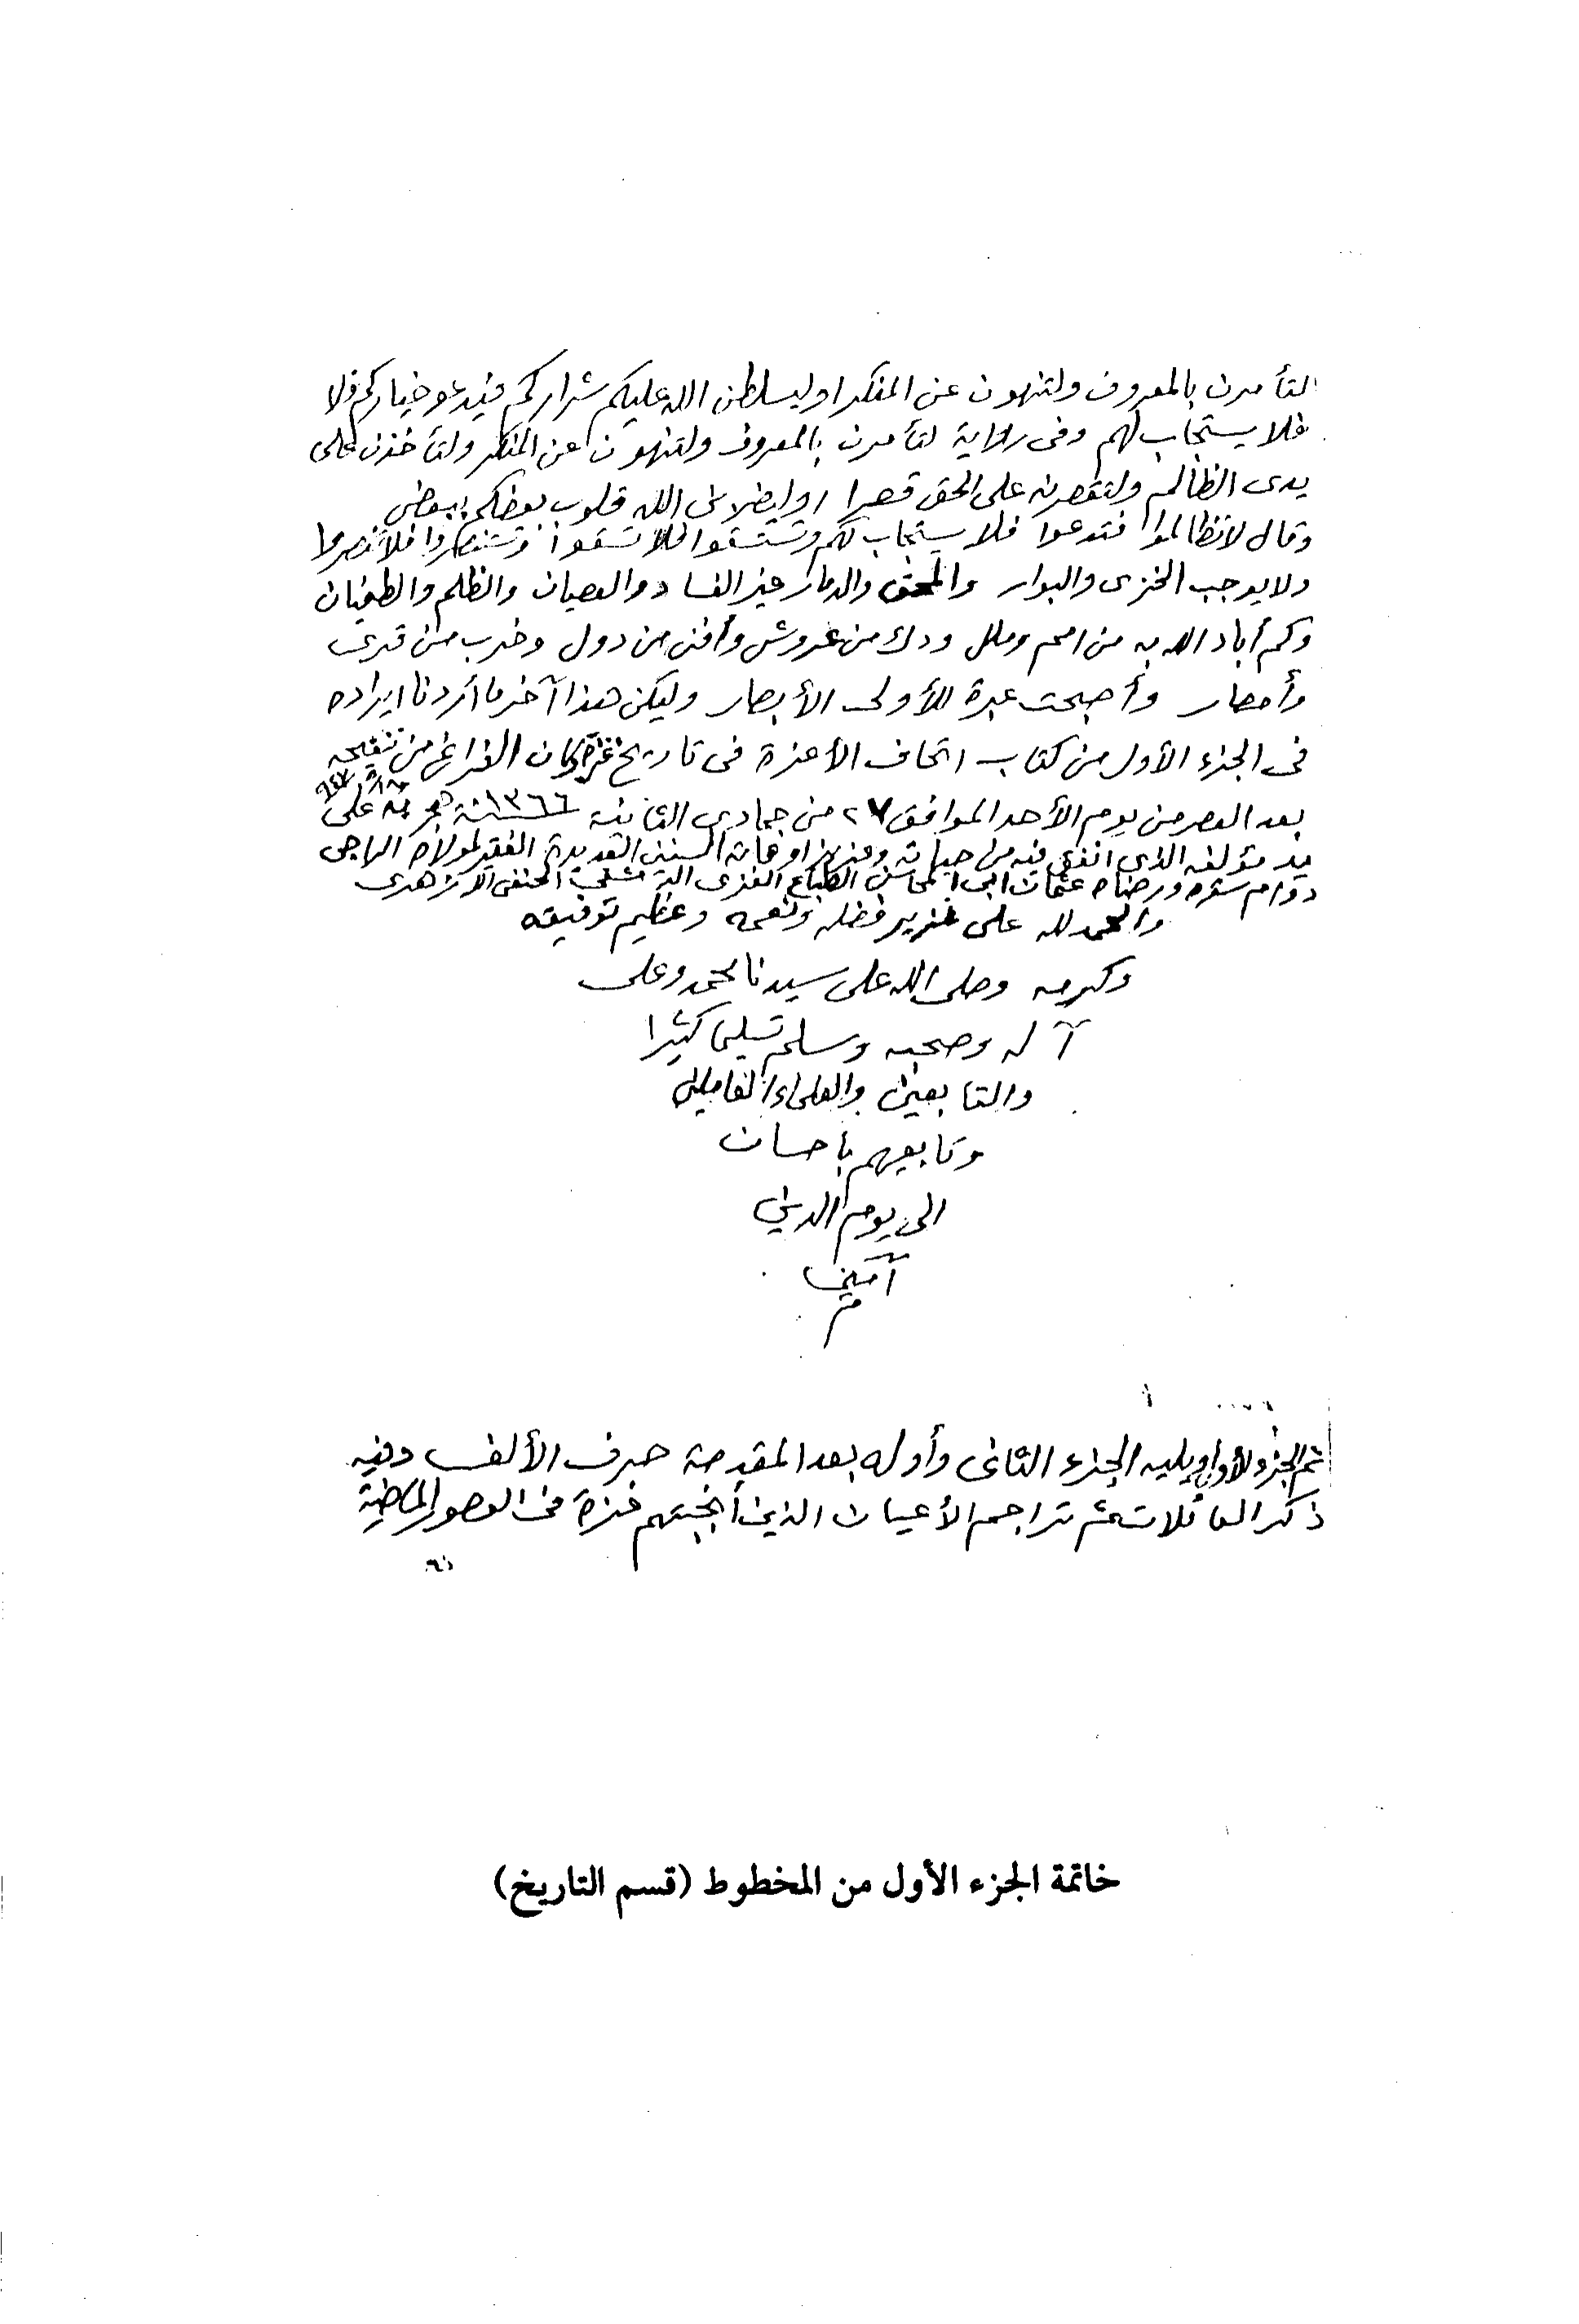 لتأمرن بالمعروف ولتنهون عن المنكر او ليسلطن الله عليكم شراركم فيدعو خياركم فلا
فلا يستجاب لهم وفى رواية لتأمرن بالمعروف ولتنهون عن المنكر ولتأخذن على
يدى الظالم ولتقصرنه على الحق قصرا او ليضربن الله قلوب بعضكم ببعض
وقال لا تظالموا فتدعوا فلا يستجاب لكم وتستسقوا فلا تسقوا وتستنصروا فلا تنصروا
ولا يوجب الخزى والبوار والمحق والدمار غير الفساد والعصيان والظلم والطغيان
وكم أباد الله به من امم وملل ودك من عروش وأفنى من دول وخرب من قرى
وأمصار وأصبحت عبرة للأولى الأبصار وليكن هذا آخر ما أردنا ايراده
فى الجزء الأول من كتاب اتحاف الأعزة فى تاريخ غزة وكان الفراغ من تنقيحه
بعد العصر من يوم الأحد الموافق ٢٧ من جمادى الثانية سنة ١٣٦٦ هجرية على
يد مؤلفه الذى انفق فيه من حياته وعزيز اوقاته السنين العديدة الفقير لمولاه الراجى
دوام ستره ورضاه عثمان ابى المحاسن الطباع الغزى الدمشقى الحنفى الازهرى
والحمد لله على غزير فضله ونعمه وعظيم توفيقه
وكرمه وصلى الله على سيدنا محمد وعلى
آله وصحبه وسلم تسليما كثيرا
والتابعين والعلماء العاملين
وتابعيهم بأحسان
الى يوم الدين
آمين
تم الجزء الأول ويليه الجزء الثانى وأوله بعد المقدمة حرف الألف وفيه
ذكر العائلات ثم تراجم الأعيان الذين أنجبتهم غزة فى العصور الماضية
خاتمة الجزء الأول من المخطوط (قسم التاريخ)